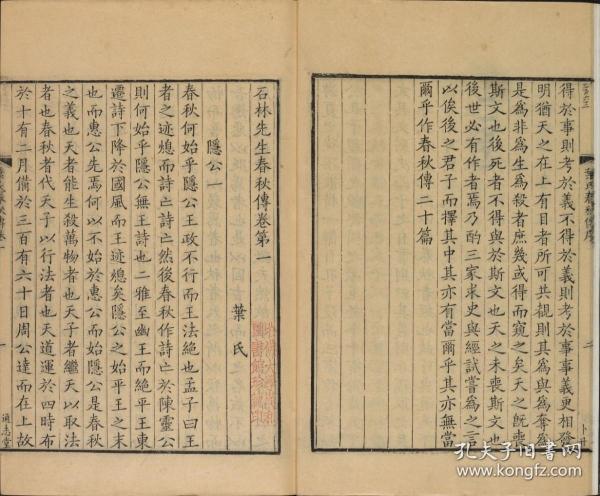 得於事則考於義不得於義則考於事事義更相發
明猶天之在上有目者所可共覩則其為與為奪為
是為非為生為殺者庶幾或得而窺之矣天之既喪
斯文也後死者不得與於斯文也天之未喪斯文也
後世必有作者焉乃酌三家求史與經試嘗為之言
以俟後之君子而擇其中其亦有當爾乎其亦無當
爾乎作春秋傳二十篇
石林先生春秋傳卷第一
葉氏
隱公一
春秋何始乎隱公王政不行而王法絕也孟子曰王
者之迹熄而詩亡詩亡然後春秋作詩亡於陳靈公
則何始乎隱公無王詩也二雅至幽王而絕平王東
遷詩下降於國風而王迹熄矣隱公之始平王之末
也而惠公先焉何以不始於惠公而始隱公是春秋
之義也天者能生殺萬物者也天子者繼天以取法
者也春秋者代天子以行法者也天道運於四時布
於十有二月備於三百有六十日周公達而在上故
通志堂
孔夫子旧书网
www.kongfz.com